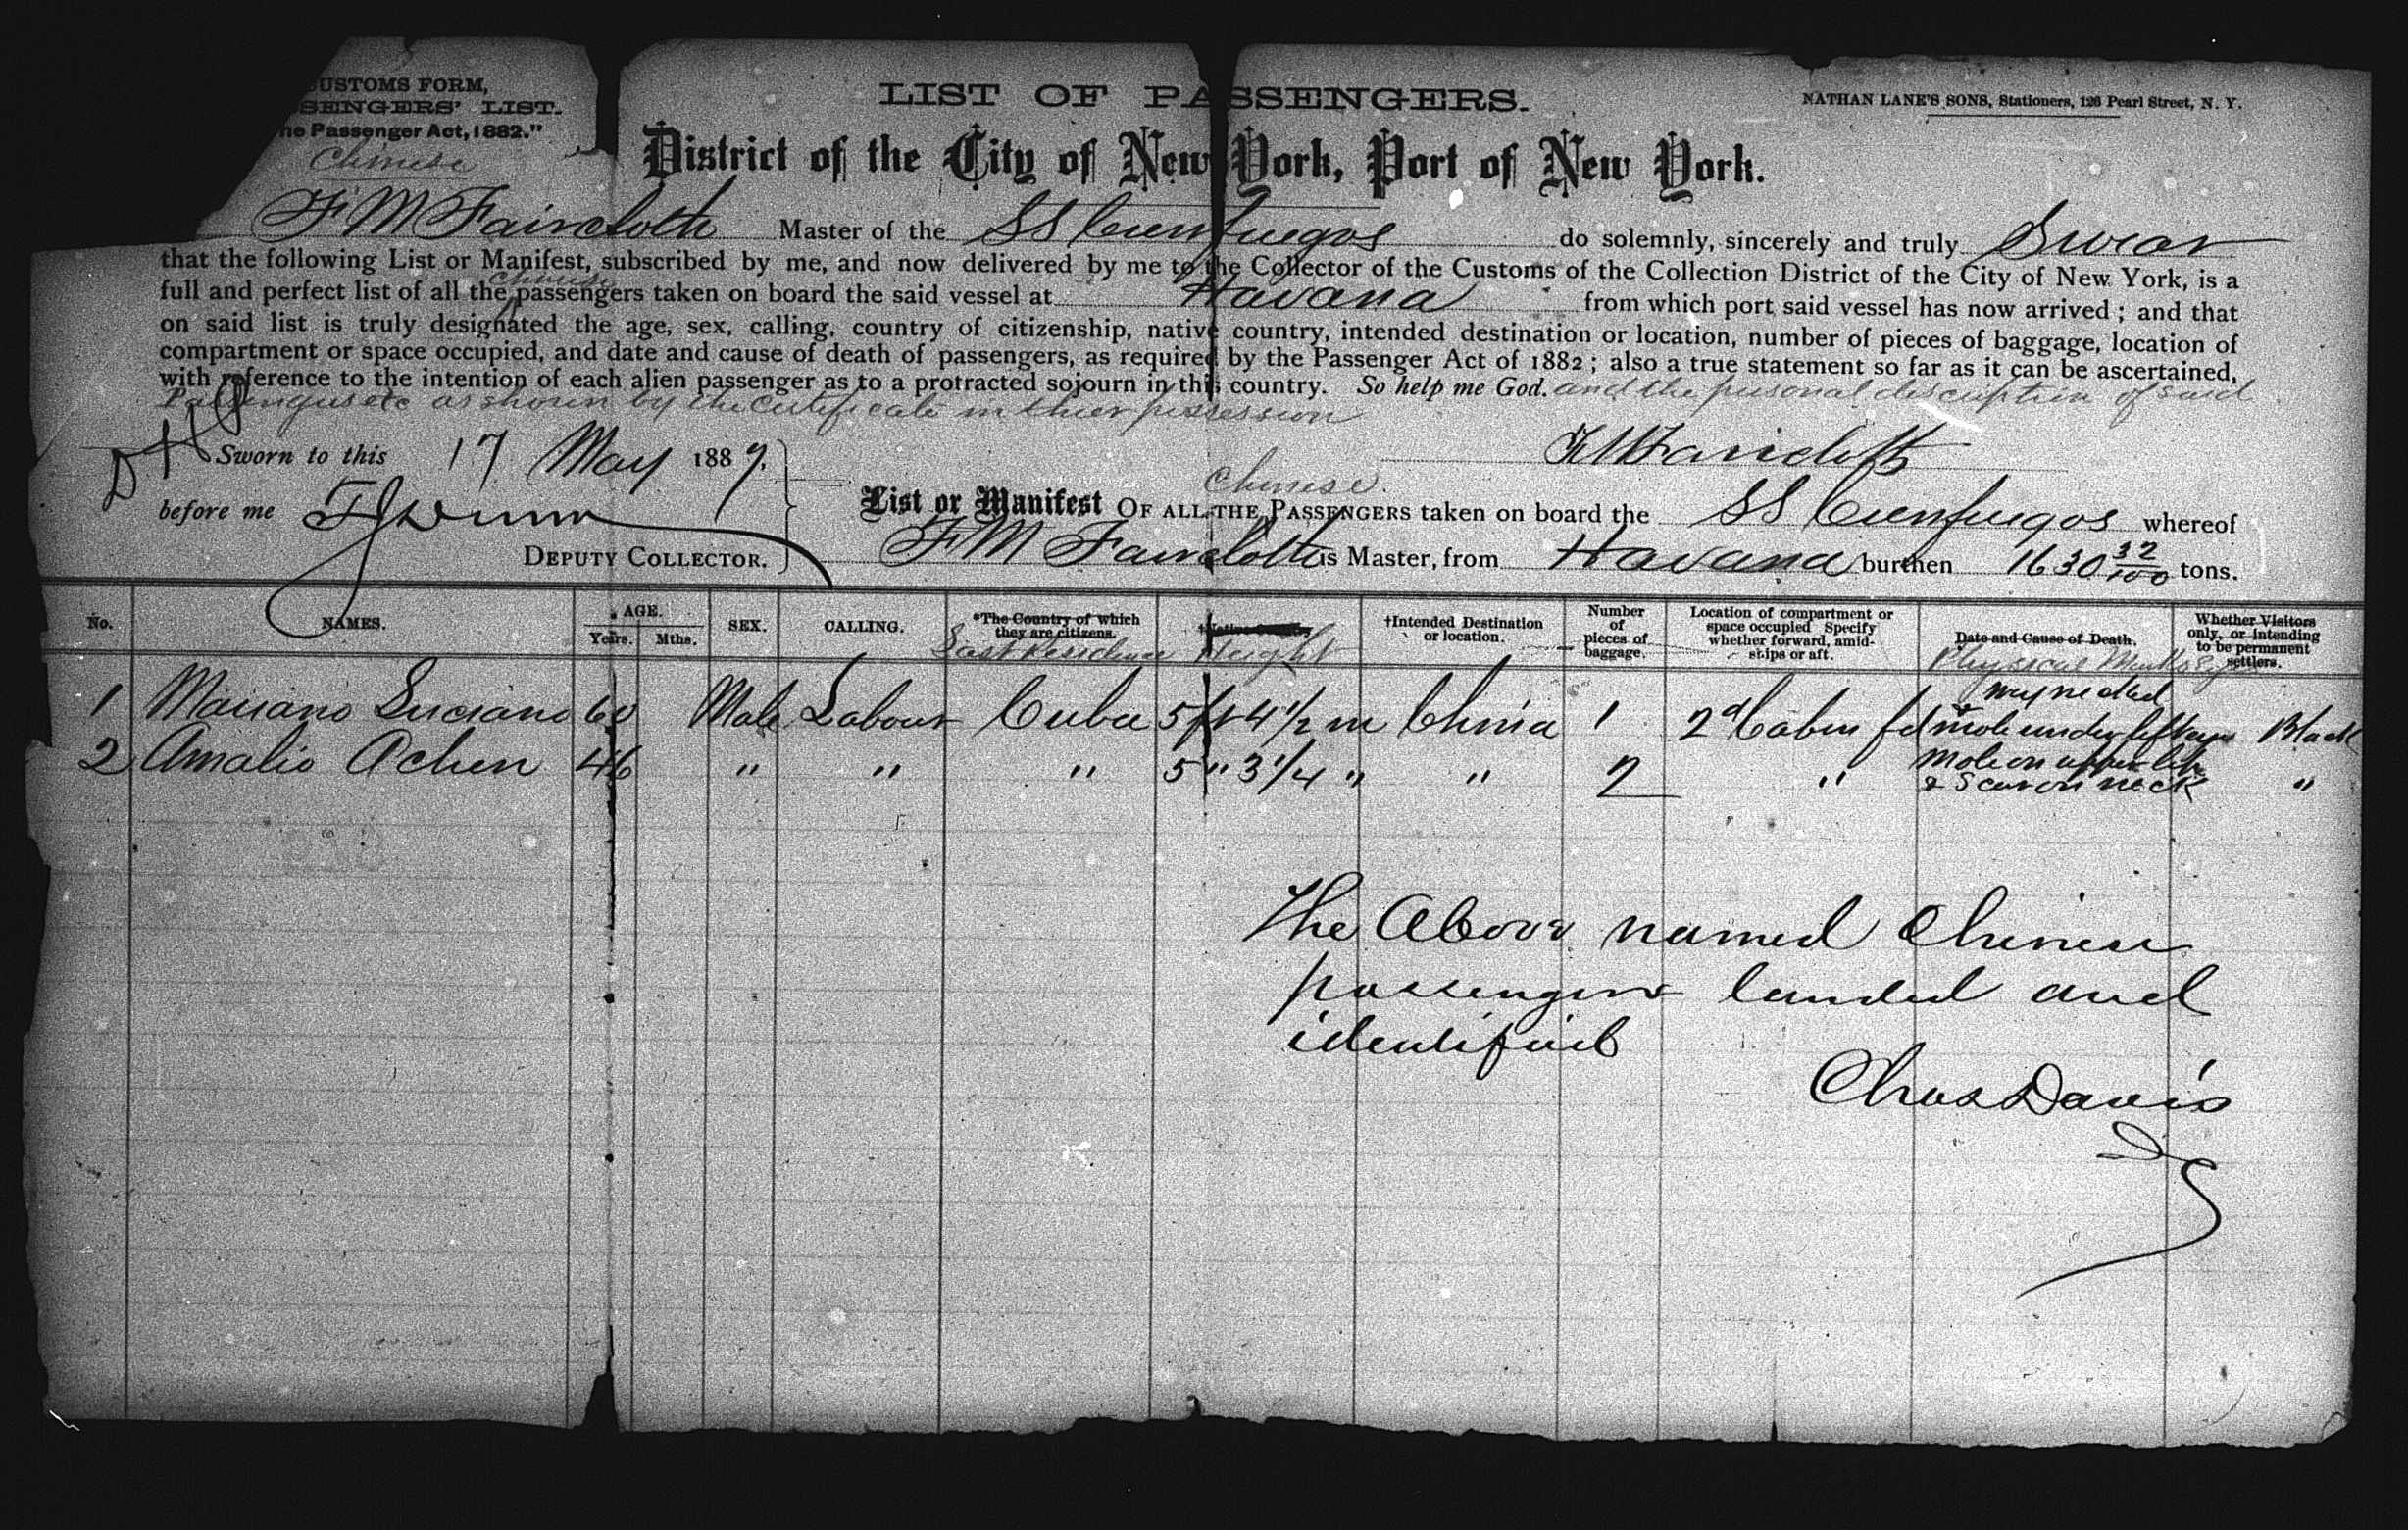 USTOMS FORM,
SSENGERS' LIST.
he Passenger Act, 1882."
Chinese
LIST OF PASSENGERS.
NATHAN LANE'S SONS, Stationers, 126 Pearl Street, N. Y.
District of the City of New York, Port of New York.
F M Faircloth Master of the SS Cienfuegos do solemnly, sincerely and truly Swear
that the following List or Manifest, subscribed by me, and now delivered by me to the Collector of the Customs of the Collection District of the City of New York, is a
full and perfect list of all the Chinese passengers taken on board the said vessel at Havana from which port said vessel has now arrived; and that
on said list is truly designated the age, sex, calling, country of citizenship, native country, intended destination or location, number of pieces of baggage, location of
compartment or space occupied, and date and cause of death of passengers, as required by the Passenger Act of 1882; also a true statement so far as it can be ascertained,
with reference to the intention of each alien passenger as to a protracted sojourn in this country. So help me God. and the personal description of said
Passengers etc as shown by the certificate in thier possession
Sworn to this 17 May 1887.
F M Faircloth
before me
DEPUTY COLLECTOR.
Chinese
List or Manifest OF ALL THE PASSENGERS taken on board the SS Cienfuegos whereof
F M Faircloth is Master, from Havana burthen 1630 32/100 tons.
No. NAMES. AGE. Years. Mths. SEX. CALLING. *The Country of which they are citizens. Last Residence Height †Intended Destination or location. Number of pieces of baggage. Location of compartment or space occupied Specify whether forward, amidships or aft. Date and Cause of Death. Physical Marks Whether Visitors only, or intending to be permanent settlers.
1 Mariano Luciano 60 Male Labour Cuba 5 ft 4 1/2 in China 1 2d Cabin fd mole under left eye Black
2 Amalio Achen 46 " " " 5 " 3 1/4 " " 2 " Mole on upper lip & Scar on neck "
The Above named Chinese
passengers landed and
identified
Chas Davis